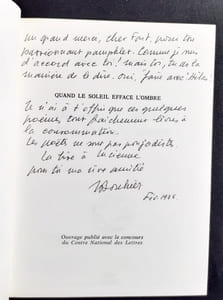 Un grand merci, cher Font, pour ton
passionnant pamphlet. Comme je suis
d'accord avec toi ! mais toi, tu as la
manière de le dire. oui, 
QUAND LE SOLEIL EFFACE L'OMBRE
Je n'ai à t'offrir que ces quelques
poèmes, tout fraîchement livrés à
la consommation.
Les poètes ne sont pas poujadistes.
La bise à Lucienne
pour toi ma vive amitié
Ouvrage publié avec le concours
du Centre National des Lettres